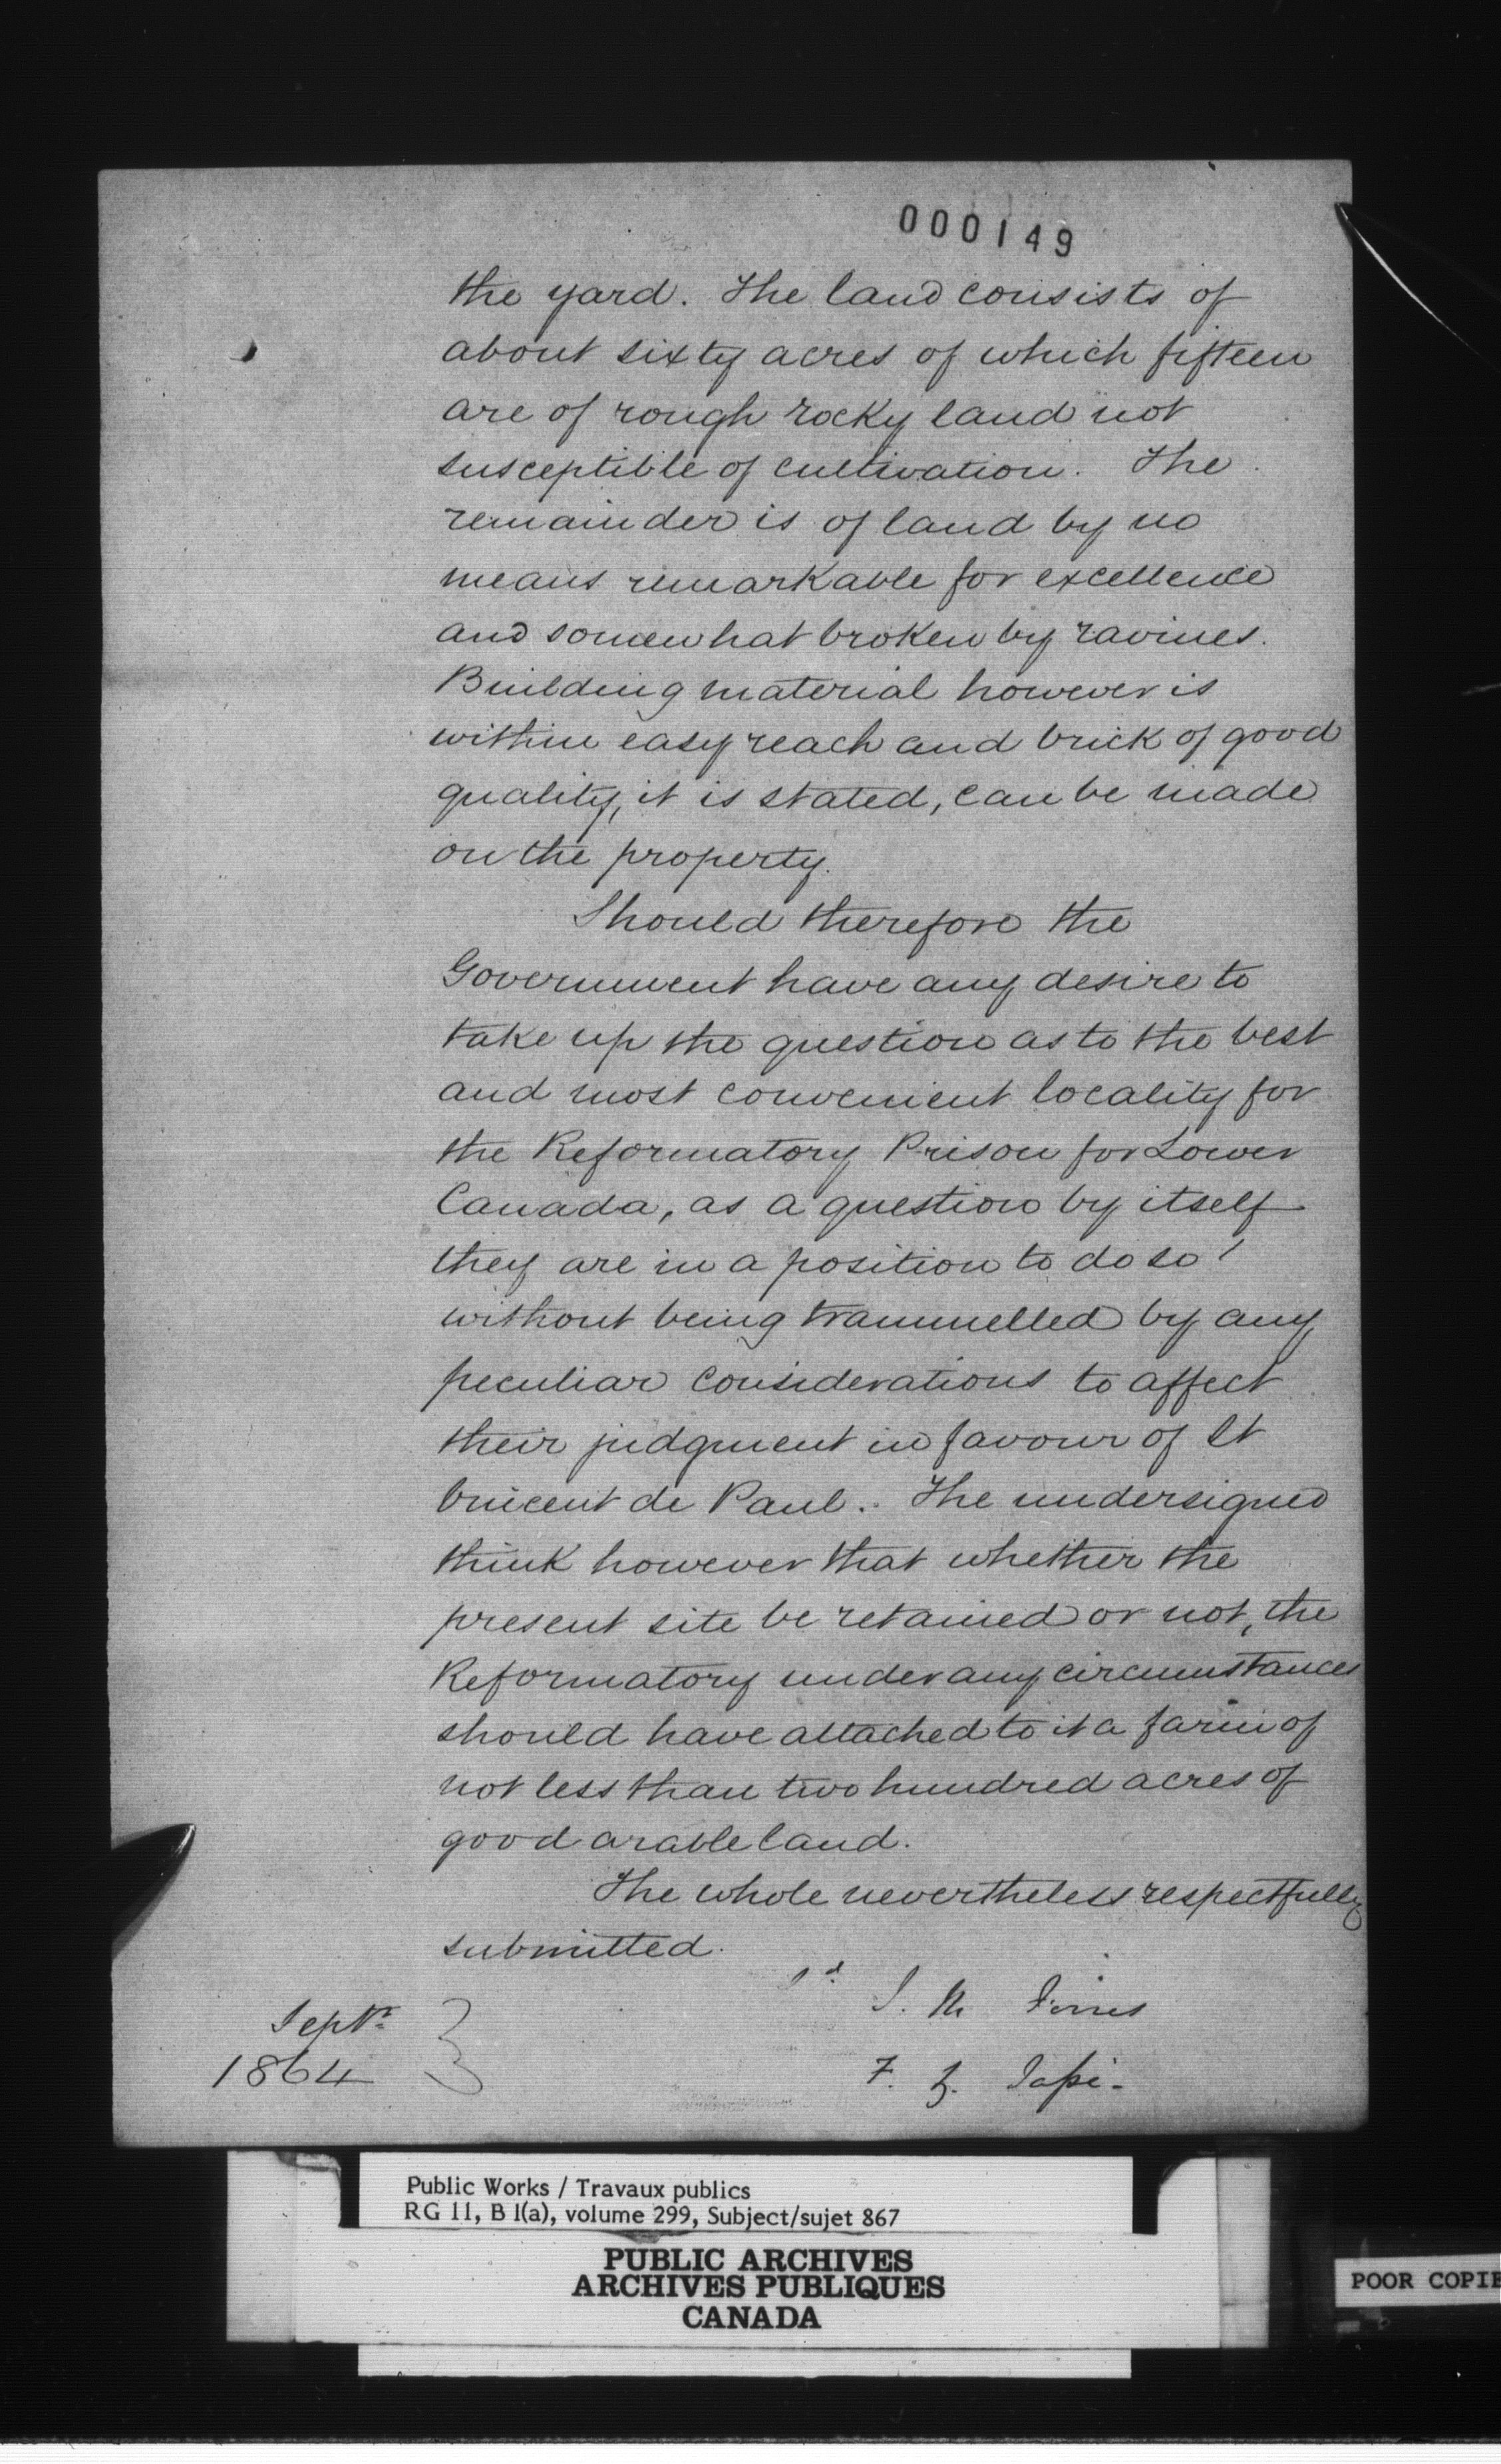 000149
the yard. The land consists of
about sixty acres of which fifteen
are of rough rocky land not
susceptible of cultivation. The
remainder is of land by no
means remarkable for excellence
and somewhat broken by ravines.
Building material however is
within easy reach and brick of good
quality, it is stated, can be made
on the property.
Should therefore the
Government have any desire to
take up the question as to the best
and most convenient locality for
the Reformatory Prison for Lower
Canada, as a question by itself
they are in a position to do so
without being trammelled by any
peculiar considerations to affect
their judgment in favour of St
Vincent de Paul. The undersigned
think however that whether the
present site be retained or not, the
Reformatory under any circumstances
should have attached to it a farm of
not less than two hundred acres of
good arable land.
The whole nevertheless respectfully
submitted.
Sd. J. M. Ferres
F. Z.
Septr
1864
Public Works / Travaux publics
RG 11, B 1(a), volume 299, Subject/sujet 867
PUBLIC ARCHIVES
ARCHIVES PUBLIQUES
CANADA
POOR COPIE